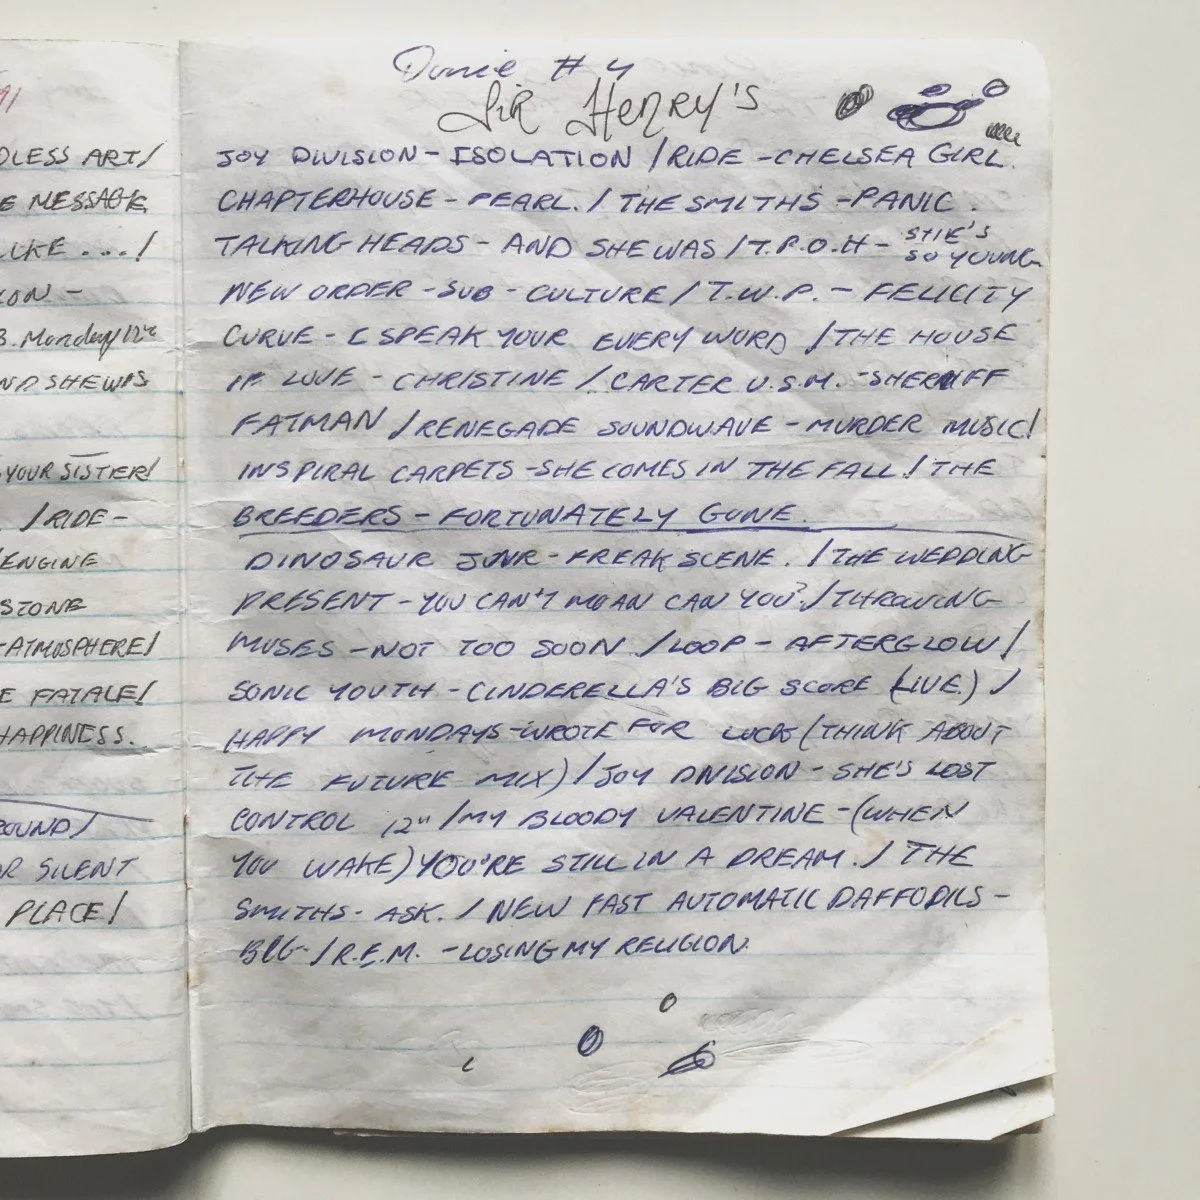 91
DLESS ART/
E MESSAGE
LIKE . . . /
ION -
B. Monday/12"
ND SHEWAS
YOUR SISTER/
/RIDE -
ENGINE
STONE
- ATMOSPHERE/
E FATALE/
HAPPINESS.
ROUND/
OR SILENT
PLACE/
Donie # 4
SIR HENRY'S
JOY DIVISION - ISOLATION / RIDE - CHELSEA GIRL.
CHAPTERHOUSE - PEARL. / THE SMITHS - PANIC.
TALKING HEADS - AND SHE WAS / T.P.O.H - SHE'S SO YOUNG
NEW ORDER - SUB - CULTURE / T.W.P. - FELICITY
CURVE - I SPEAK YOUR EVERY WORD / THE HOUSE
OF LOVE - CHRISTINE / CARTER U.S.M. - SHERRIFF
FATMAN / RENEGADE SOUNDWAVE - MURDER MUSIC/
INSPIRAL CARPETS - SHE COMES IN THE FALL / THE
BREEDERS - FORTUNATELY GONE.
DINOSAUR JUNR - FREAK SCENE. / THE WEDDING
PRESENT - YOU CAN'T MOAN CAN YOU? / THROWING
MUSES - NOT TOO SOON / LOOP - AFTERGLOW /
SONIC YOUTH - CINDERELLA'S BIG SCORE (LIVE.) /
HAPPY MONDAYS - WROTE FOR LUCK (THINK ABOUT
THE FUTURE MIX) / JOY DIVISION - SHE'S LOST
CONTROL 12" / MY BLOODY VALENTINE - (WHEN
YOU WAKE) YOU'RE STILL IN A DREAM. / THE
SMITHS - ASK. / NEW FAST AUTOMATIC DAFFODILS -
BIG - / R.E.M. - LOSING MY RELIGION.